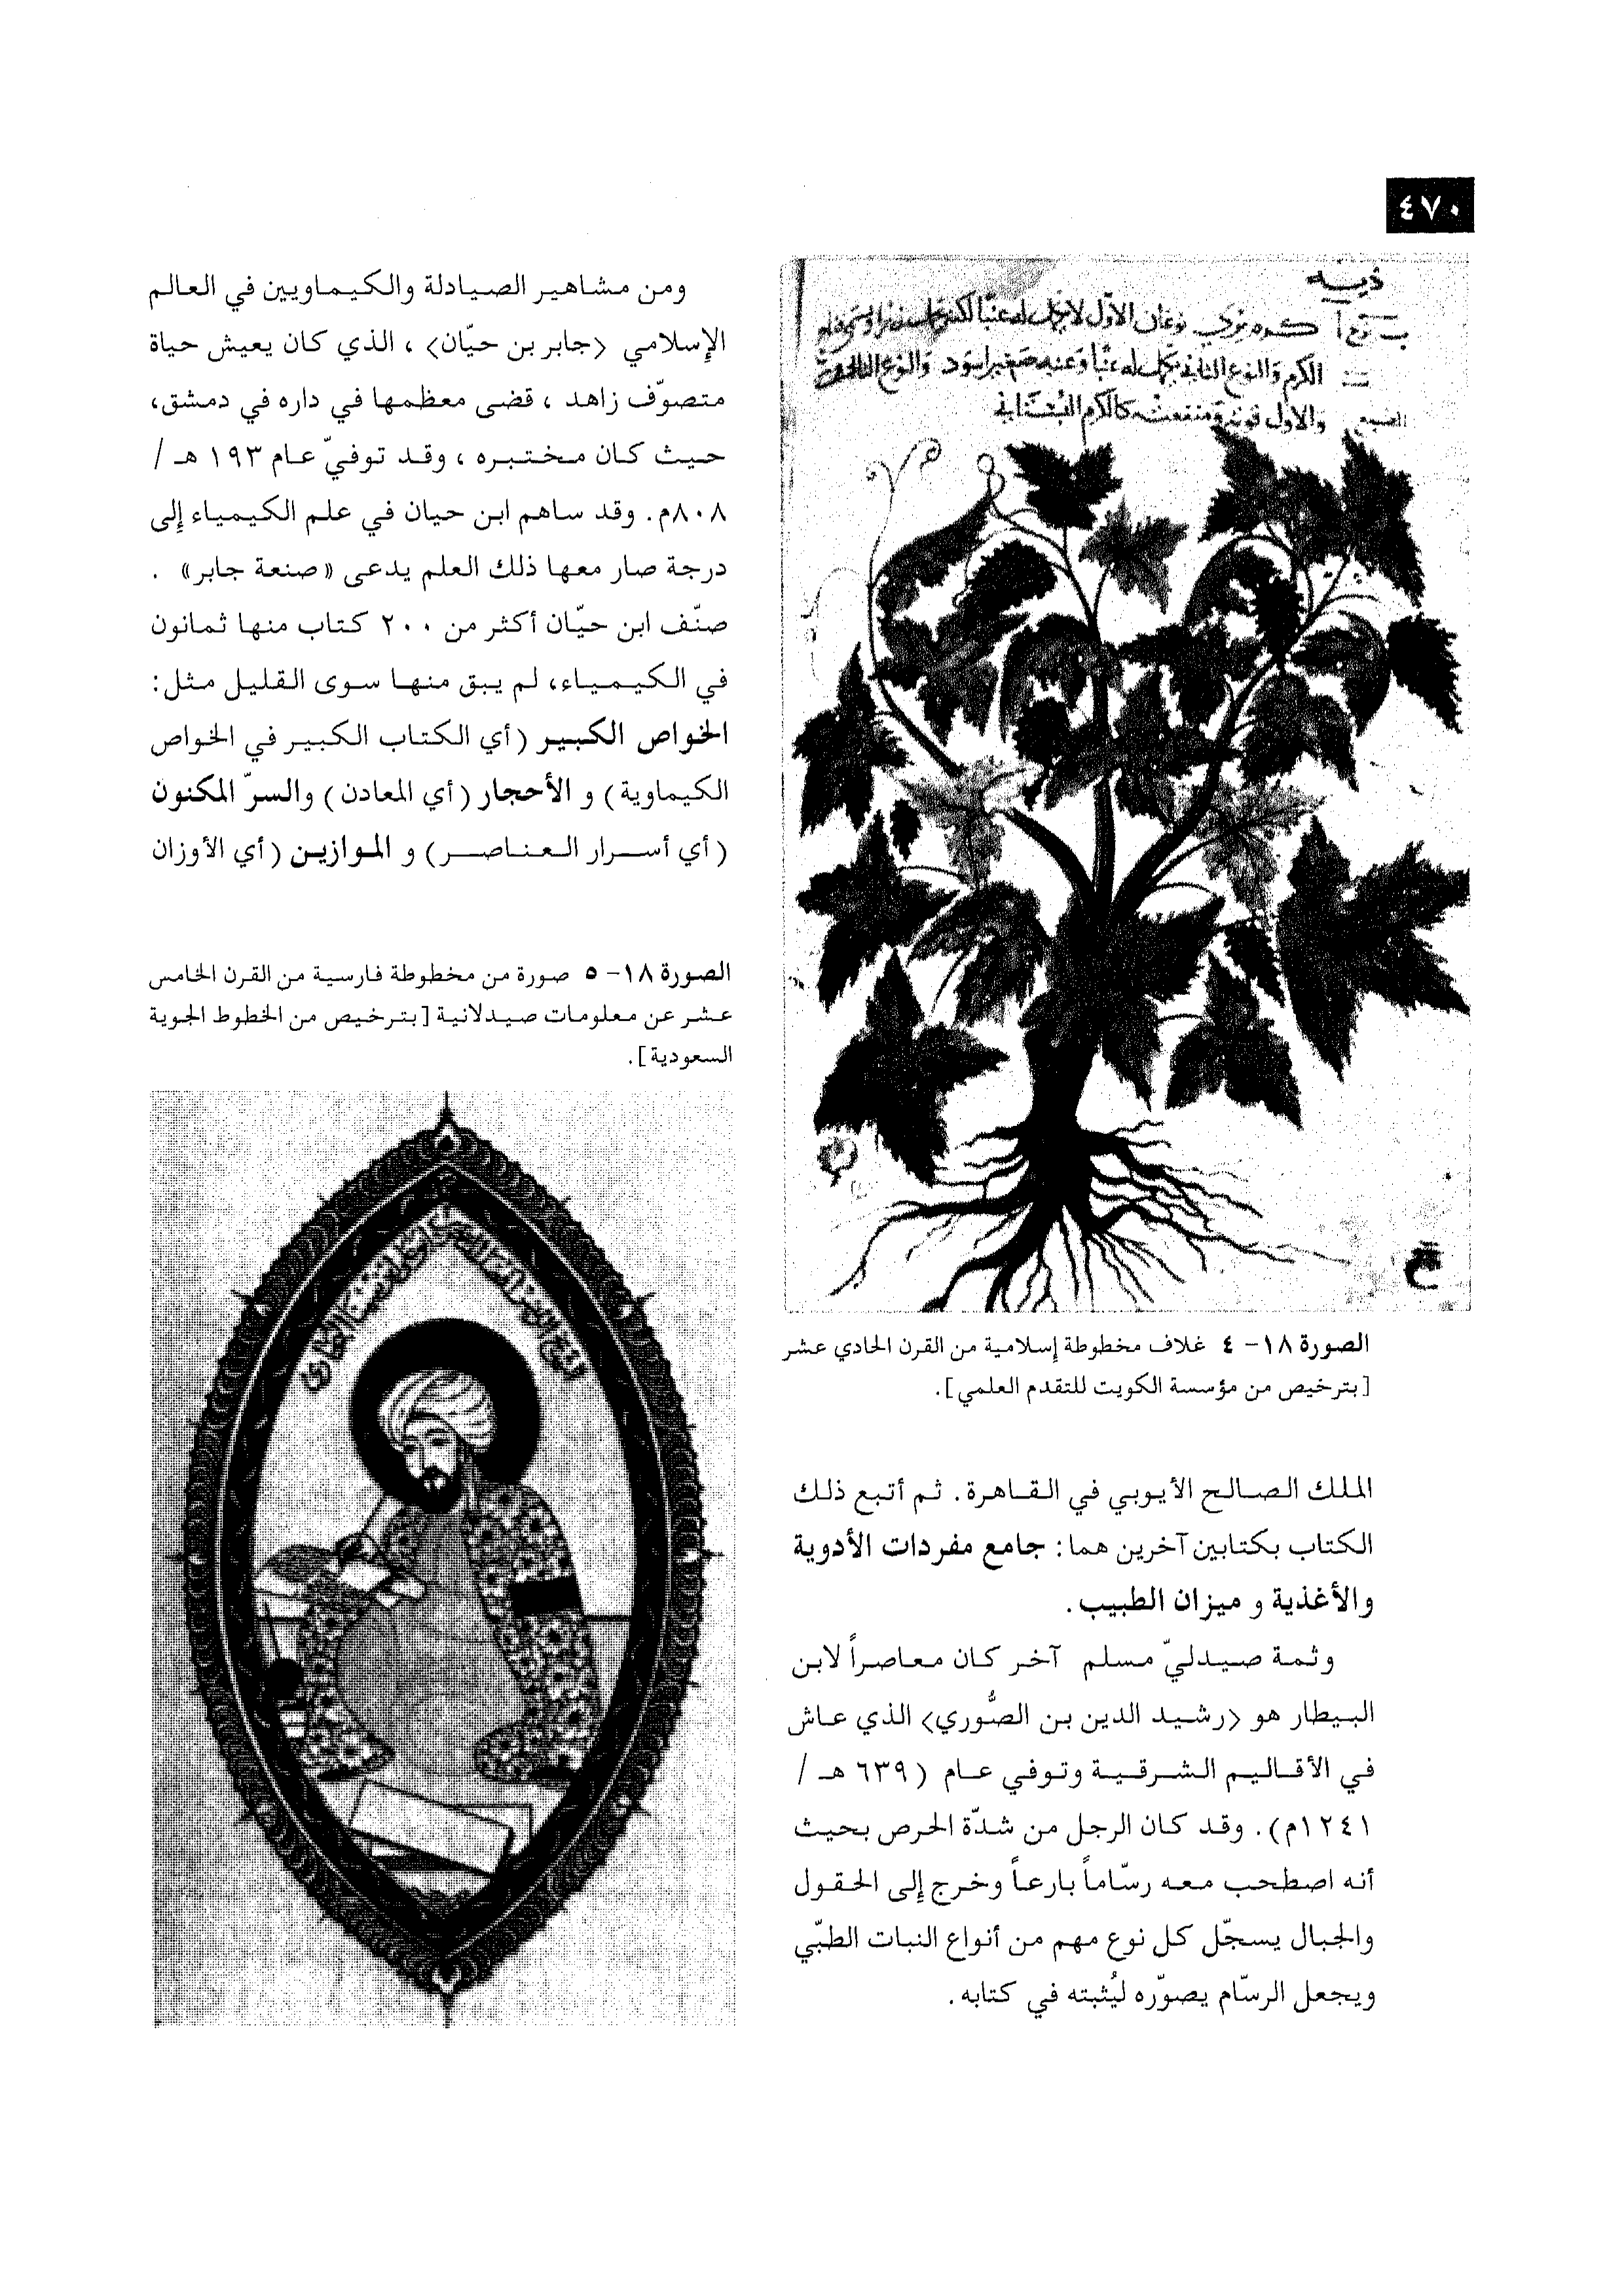 ٤٧٠
الكرم والنوع الثاني
الصورة ١٨- ٤ غلاف مخطوطة إسلامية من القرن الحادي عشر
[بترخيص من مؤسسة الكويت للتقدم العلمي].
الملك الصالح الأيوبي في القاهرة. ثم أتبع ذلك
الكتاب بكتابين آخرين هما: جامع مفردات الأدوية
والأغذية و ميزان الطبيب.
وثمة صيدليّ مسلم آخر كان معاصراً لابن
البيطار هو <رشيد الدين بن الصُّوري> الذي عاش
في الأقاليم الشرقية وتوفي عام (٦٣٩ هـ /
١٢٤١م). وقد كان الرجل من شدّة الحرص بحيث
أنه اصطحب معه رسّاماً بارعاً وخرج إلى الحقول
والجبال يسجّل كل نوع مهم من أنواع النبات الطبّي
ويجعل الرسّام يصوّره ليُثبته في كتابه.
ومن مشاهير الصيادلة والكيماويين في العالم
الإسلامي <جابر بن حيّان>، الذي كان يعيش حياة
متصوّف زاهد، قضى معظمها في داره في دمشق،
حيث كان مختبره، وقد توفيّ عام ١٩٣ هـ /
٨٠٨م. وقد ساهم ابن حيان في علم الكيمياء إلى
درجة صار معها ذلك العلم يدعى «صنعة جابر» .
صنّف ابن حيّان أكثر من ٢٠٠ كتاب منها ثمانون
في الكيمياء، لم يبق منها سوى القليل مثل:
الخواص الكبير (أي الكتاب الكبير في الخواص
الكيماوية) و الأحجار (أي المعادن) والسرّ المكنون
(أي أسرار العناصر) و الموازين (أي الأوزان
الصورة ١٨- ٥ صورة من مخطوطة فارسية من القرن الخامس
عشر عن معلومات صيدلانية [بترخيص من الخطوط الجوية
السعودية].